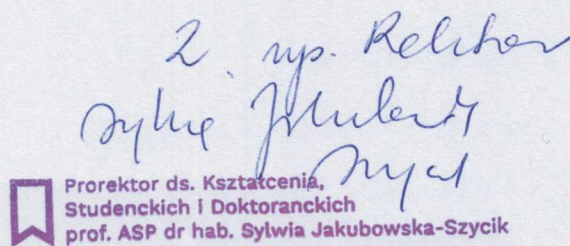 Z up. Rektora
Sylwia Jakubowska
Szycik
Prorektor ds. Kształcenia,
Studenckich i Doktoranckich
prof. ASP dr hab. Sylwia Jakubowska-Szycik